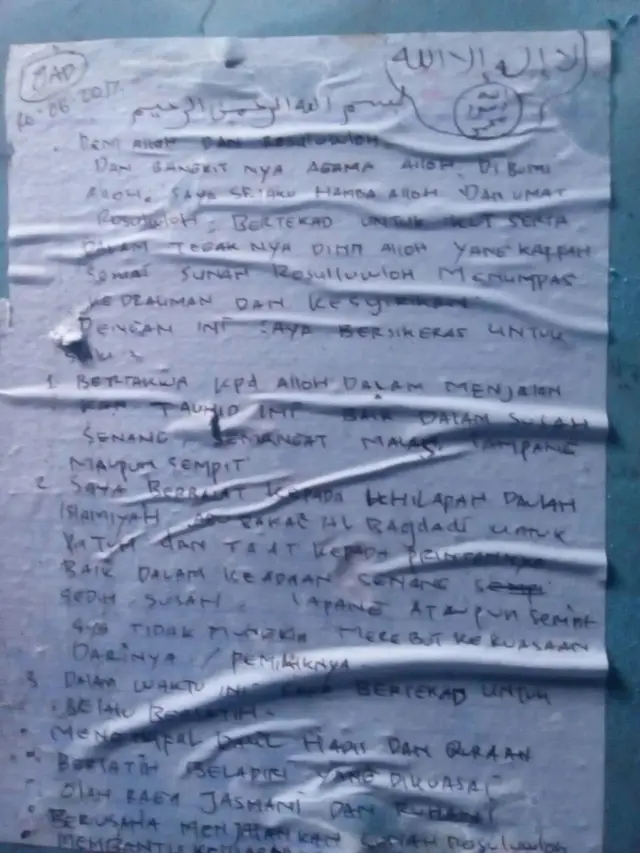 لا إله إلا الله
JAD
10.06.2017.
الله رسول محمد
بسم الله الرحمن الرحيم
DEMI Alloh DAN ROSULULLOH
DAN BANGKIT NYA AGAMA Alloh DI BUMI
Alloh. SAYA SELAKU HAMBA Alloh DAN UMAT
ROSULULOH. BERTEKAD UNTUK IKUT SERTA
DALAM TEGAK NYA DINN Alloh YANG KAFFAH
SESUAI SUNAH ROSULLULLOH MENUMPAS
KEDZALIMAN DAN KESYIRIKAN
DENGAN INI SAYA BERSIKERAS UNTUK
1. BERTAKWA Kpd Alloh DALAM MENJALAN
KAN TAUHID INI BAIK DALAM SUSAH
SENANG, SEMANGAT MALAS, LAMPANG
MAUPUN SEMPIT
2. SAYA BERBAIAT KEPADA KHILAPAH DAULAH
ISLAMIYAH ABU BAKAR AL BAGDADI UNTUK
DAN TAAT KEPADA
BAIK DALAM KEADAAN SENANG
SEDIH, SUSAH, LAPANG ATAUPUN SEMPIT
TIDAK MUNGKIN MEREBUT KEKUASAAN
DARINYA / PEMILIKNYA
3. DALAM WAKTU INI SAYA BERTEKAD UNTUK
SELALU BERLATIH.
• MENGHAFAL DALIL HADIS DAN QURAAN
• BERLATIH BELADIRI YANG DIKUASAI
• OLAH RAGA JASMANI DAN ROHANI
• BERUSAHA MENJALANKAN SUNAH ROSULULLOH
• MEMBANTU